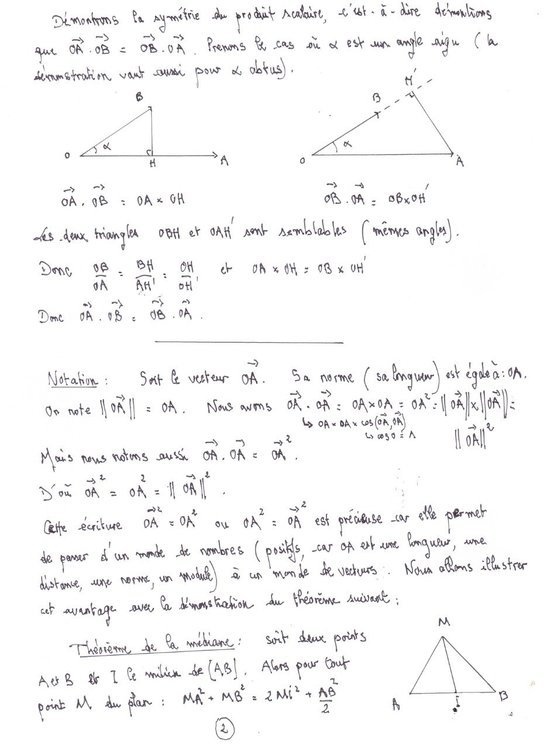 Démontrons la symétrie du produit scalaire, c'est-à-dire démontrons
que OA⃗ . OB⃗ = OB⃗ . OA⃗. Prenons le cas où α est un angle aigu (la
démonstration vaut aussi pour α obtus).
B
O α H A
M' B
O α A
OA⃗ . OB⃗ = OA × OH
OB⃗ . OA⃗ = OB × OH'
Les deux triangles OBH et OAH' sont semblables (mêmes angles).
Donc OB/OA = BH/AH' = OH/OH' et OA × OH = OB × OH'
Donc OA⃗ . OB⃗ = OB⃗ . OA⃗.
Notation : Soit le vecteur OA⃗. Sa norme (sa longueur) est égale à : OA.
On note ||OA⃗|| = OA. Nous avons OA⃗ . OA⃗ = OA × OA = OA² = ||OA⃗|| × ||OA⃗|| =
↳ OA × OA × cos(OA⃗, OA⃗)
↳ cos 0 = 1
||OA⃗||²
Mais nous notons aussi OA⃗ . OA⃗ = OA⃗².
D'où OA⃗² = OA² = ||OA⃗||².
Cette écriture OA⃗² = OA² ou OA² = OA⃗² est précieuse car elle permet
de passer d'un monde de nombres (positifs, car OA est une longueur, une
distance, une norme, un module) à un monde de vecteurs. Nous allons illustrer
cet avantage avec la démonstration du théorème suivant :
Théorème de la médiane : soit deux points
A et B et I le milieu de [AB]. Alors pour tout
point M du plan : MA² + MB² = 2MI² + AB²/2
M
A I B
2